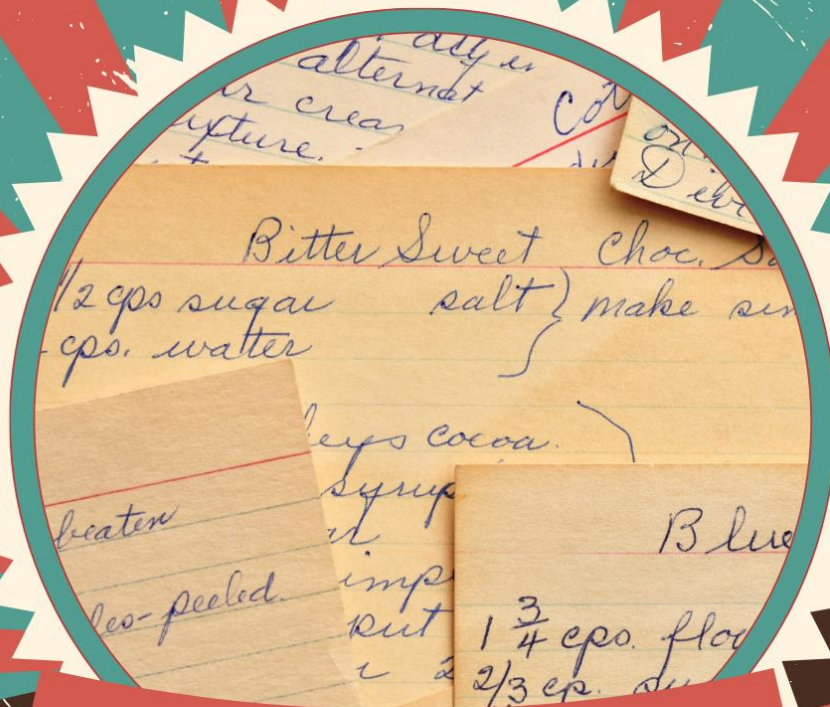 alternat
r crea
ixture.
Cot
on
Div
Bitter Sweet Choc. S
1/2 cps sugar salt } make sim
cps. watter
eys cocoa.
syrup
impe
put
2
beaten
les-peeled.
Blue
1 3/4 cps. flou
2/3 cp. su